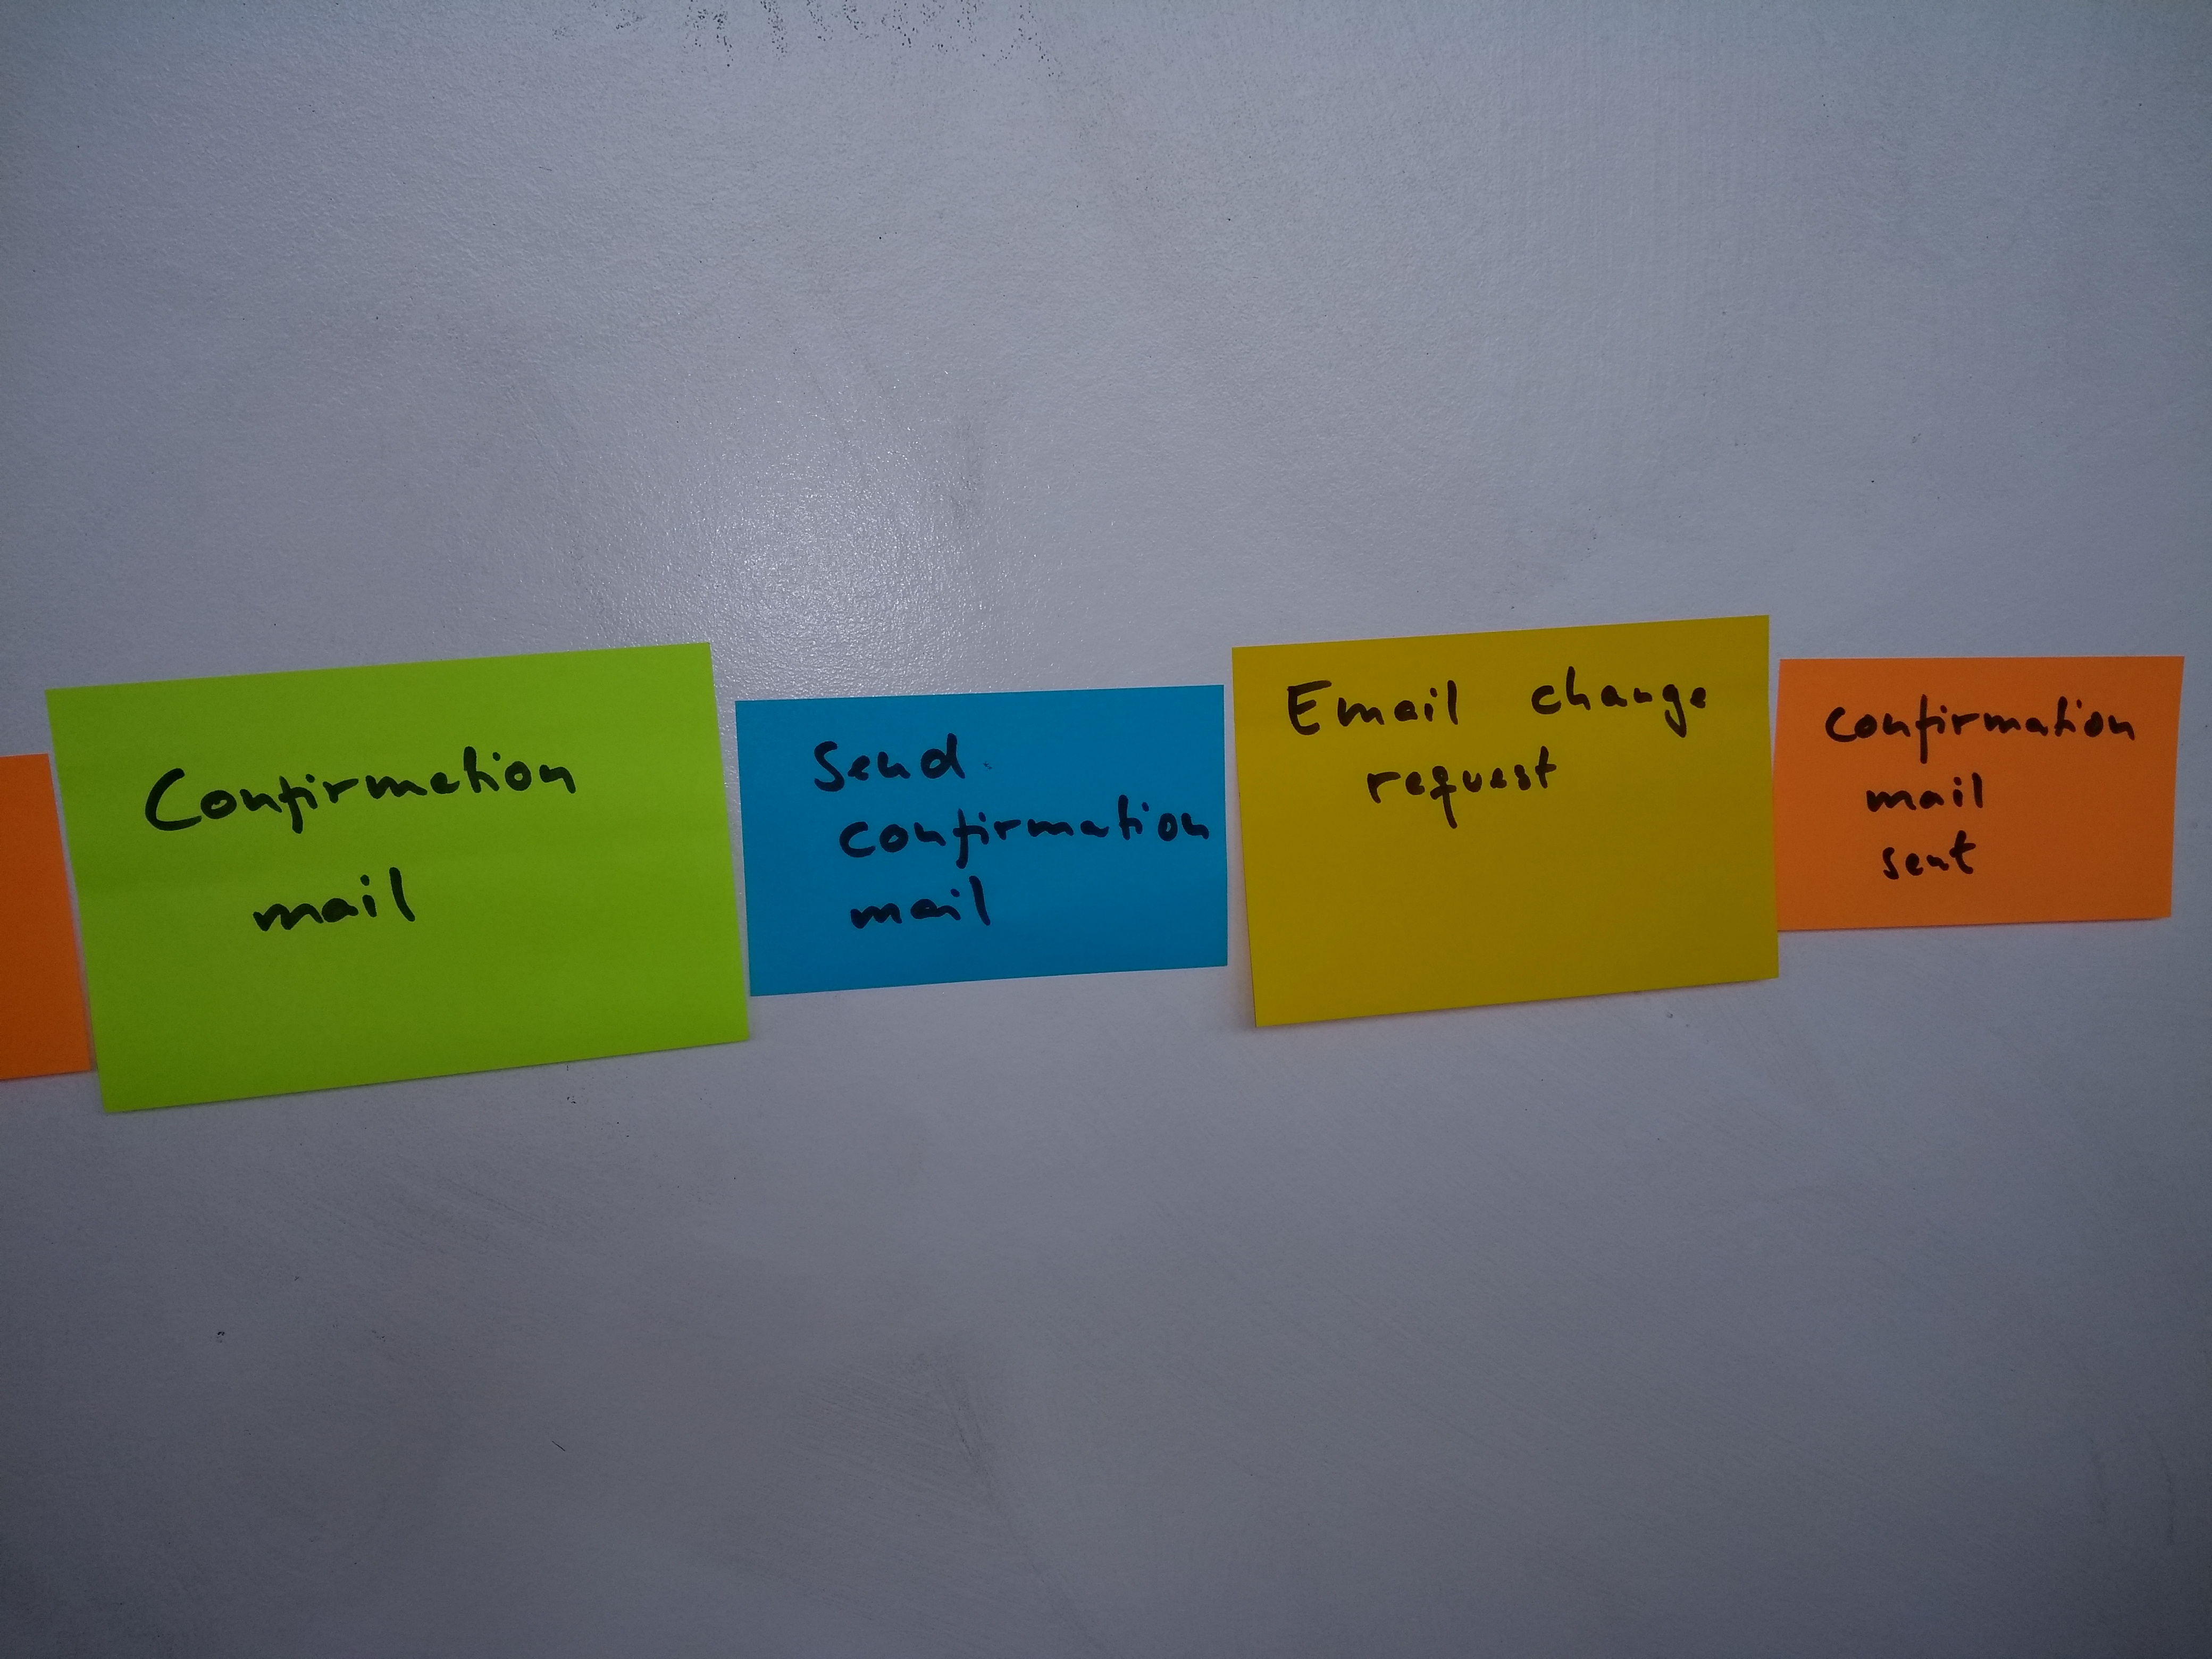 Confirmation
mail
Send
confirmation
mail
Email change
request
Confirmation
mail
sent